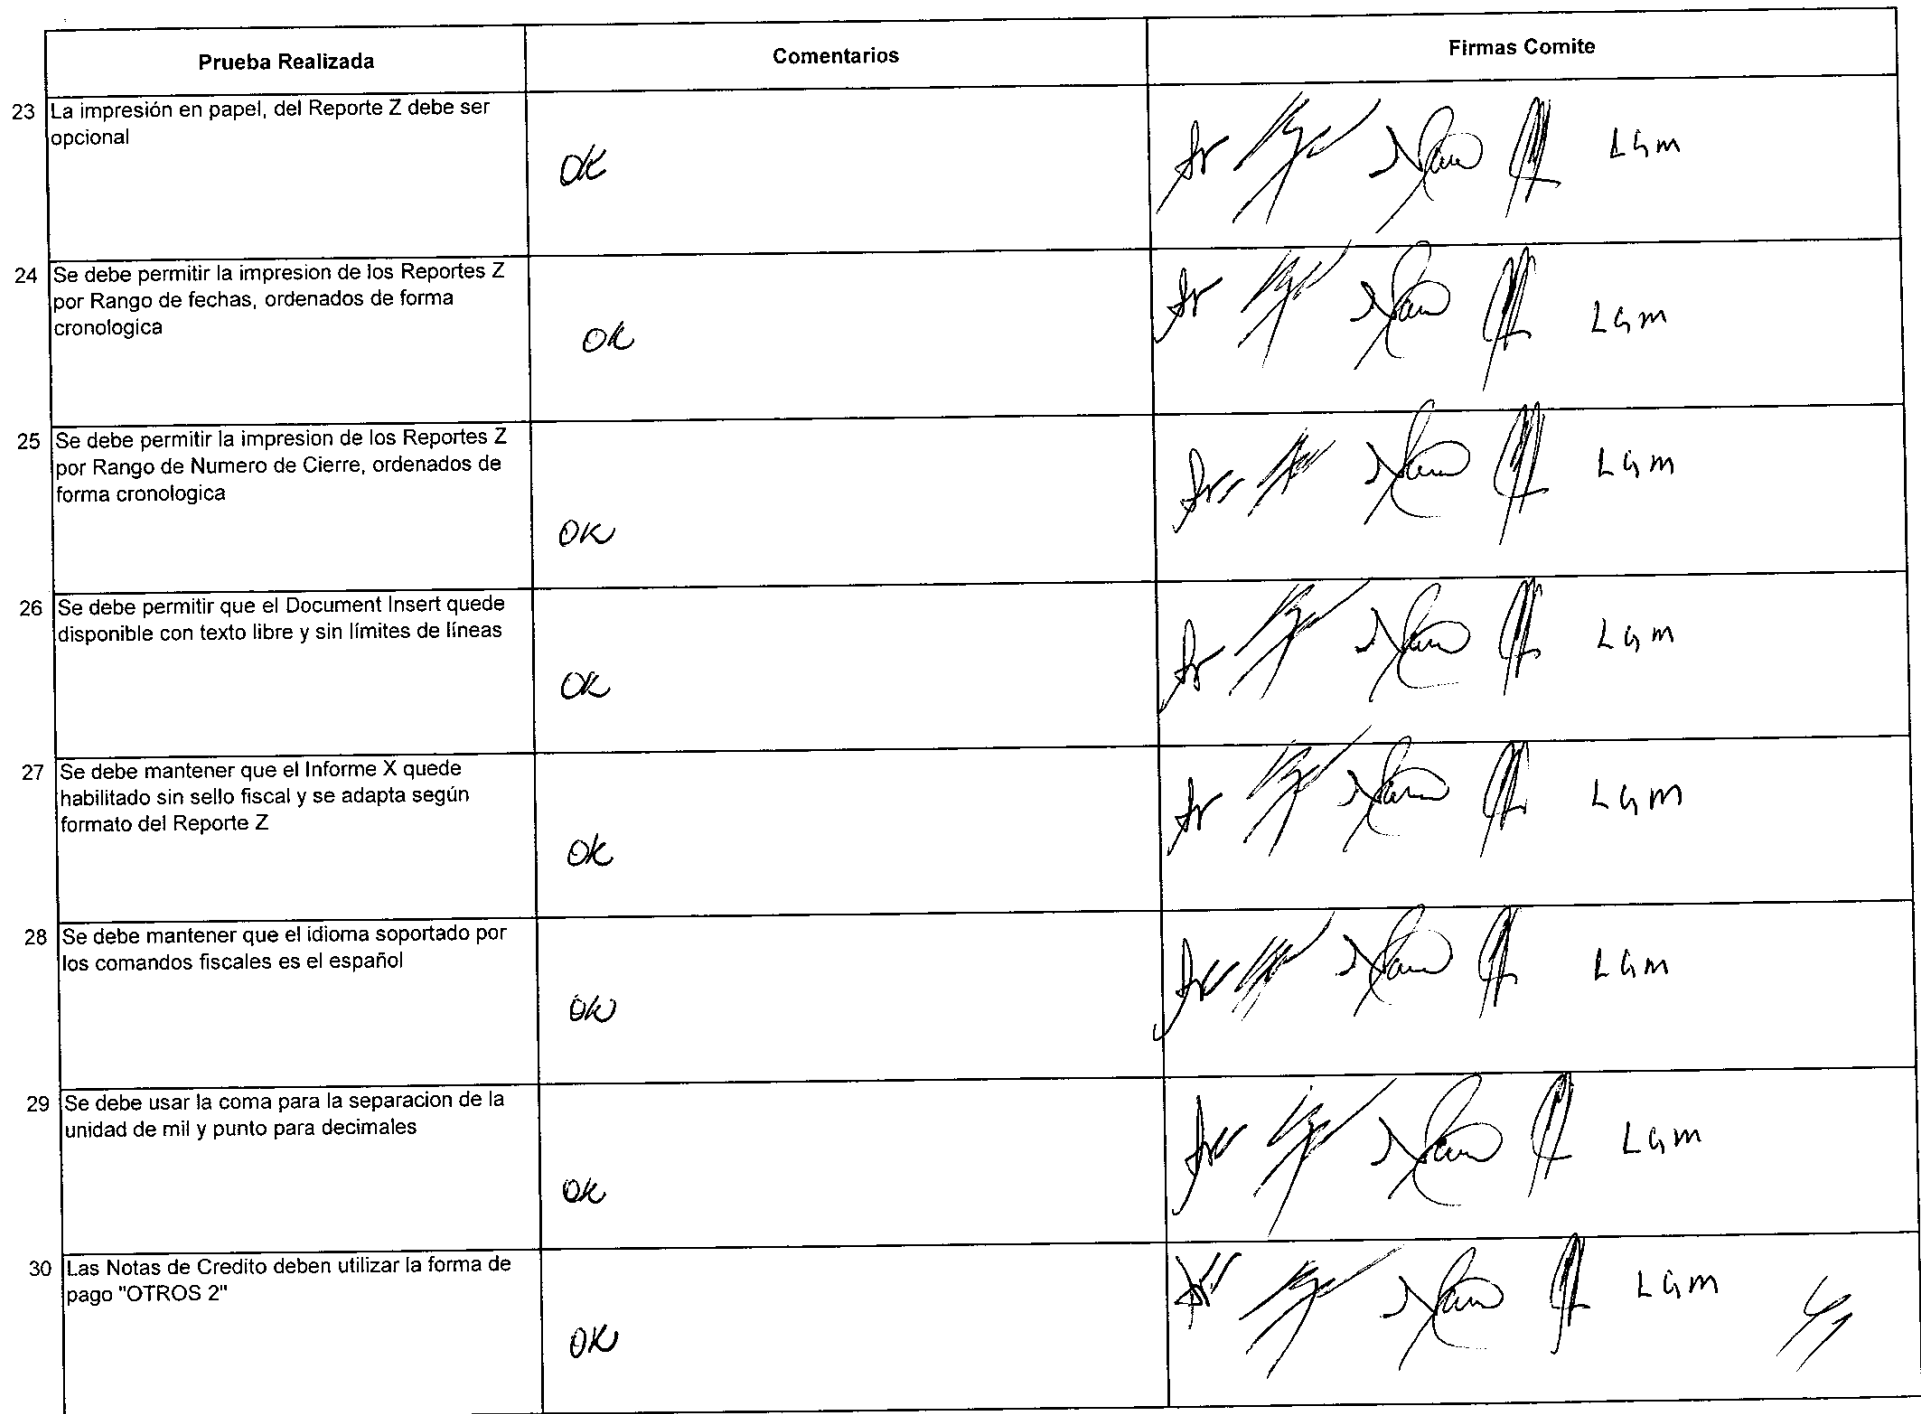 Prueba Realizada Comentarios Firmas Comite
23 La impresión en papel, del Reporte Z debe ser
opcional
OK
LGm
24 Se debe permitir la impresion de los Reportes Z
por Rango de fechas, ordenados de forma
cronologica
OK
LGm
25 Se debe permitir la impresion de los Reportes Z
por Rango de Numero de Cierre, ordenados de
forma cronologica
OK
LGm
26 Se debe permitir que el Document Insert quede
disponible con texto libre y sin límites de líneas
OK
LGm
27 Se debe mantener que el Informe X quede
habilitado sin sello fiscal y se adapta según
formato del Reporte Z
OK
LGm
28 Se debe mantener que el idioma soportado por
los comandos fiscales es el español
OK
LGm
29 Se debe usar la coma para la separacion de la
unidad de mil y punto para decimales
OK
LGm
30 Las Notas de Credito deben utilizar la forma de
pago "OTROS 2"
OK
LGm